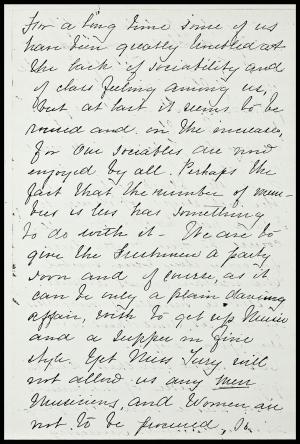 For a long time some of us
have been greatly troubled at
the lack of sociability and
of class feeling among us,
but at last it seems to be
roused and on the increase,
for our sociables are now
enjoyed by all. Perhaps the
fact that the number of mem-
bers is less has something
to do with it - We are to
give the Freshmen a party
soon and of course, as it
can be only a plain dancing
affair, wish to get up Music
and a supper in fine
style. Yet Miss will
not allow us any men
Musicians, and Women are
not to be procured,